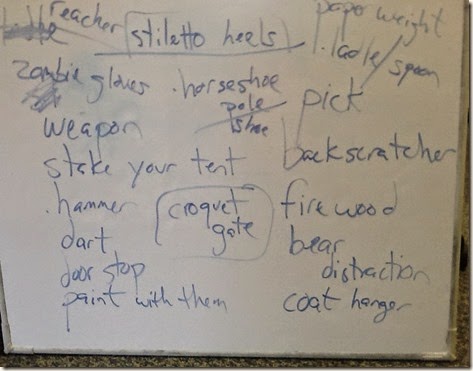 reacher
stiletto heels
paper weight
ladle / spoon
zombie gloves
horseshoe
pole
shoe
pick
weapon
backscratcher
stake your tent
hammer
croquet
gate
firewood
dart
bear
distraction
door stop
paint with them
coat hanger